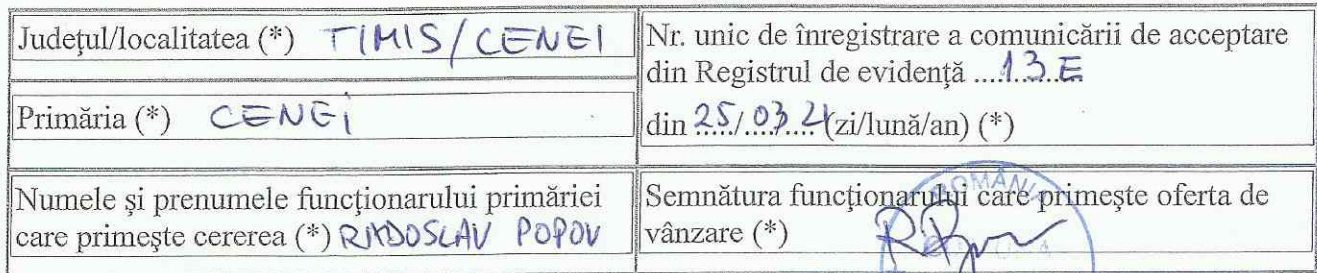 Județul/localitatea (*) TIMIS/CENEI
Primăria (*) CENEI
Nr. unic de înregistrare a comunicării de acceptare
din Registrul de evidență ....13E
din 25/03 21 (zi/lună/an) (*)
Numele și prenumele funcționarului primăriei
care primește cererea (*) RADOSLAV POPOV
Semnătura funcționarului care primește oferta de
vânzare (*)
ROMÂNIA